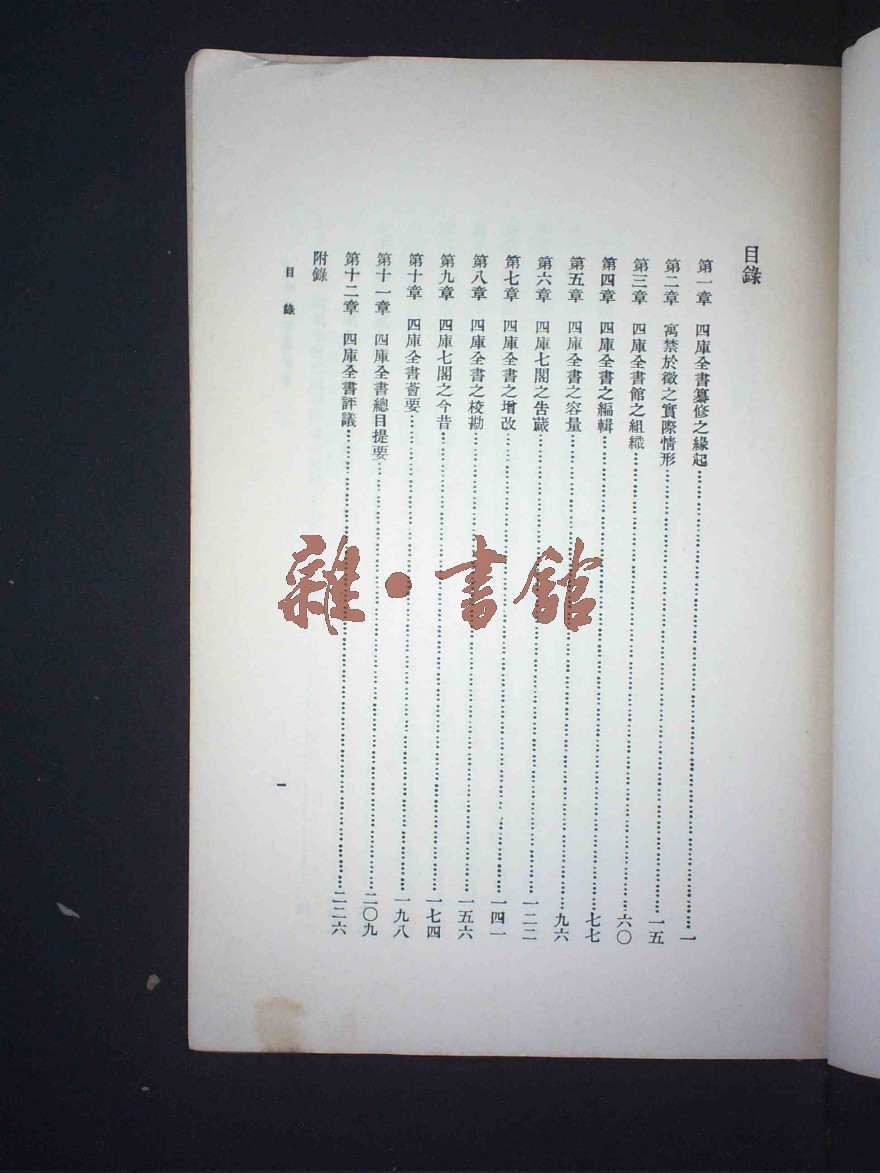 目錄
第一章 四庫全書纂修之緣起……一
第二章 寓禁於徵之實際情形……一五
第三章 四庫全書館之組織……六〇
第四章 四庫全書之編輯……七七
第五章 四庫全書之容量……九六
第六章 四庫七閣之告蕆……一二二
第七章 四庫全書之增改……一四一
第八章 四庫全書之校勘……一五六
第九章 四庫七閣之今昔……一七四
第十章 四庫全書薈要……一九八
第十一章 四庫全書總目提要……二〇九
第十二章 四庫全書評議……二二六
附錄
目錄
一
雜·書館